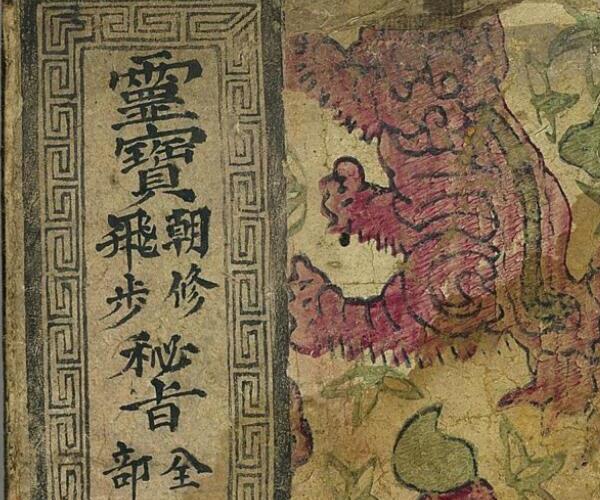 靈寶
朝修
飛步
秘旨
全
部